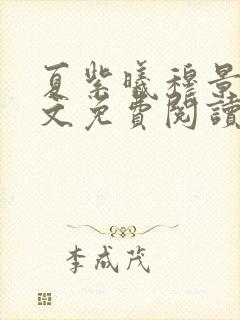 夏紫曦穆景
文免費閱讀
李成茂